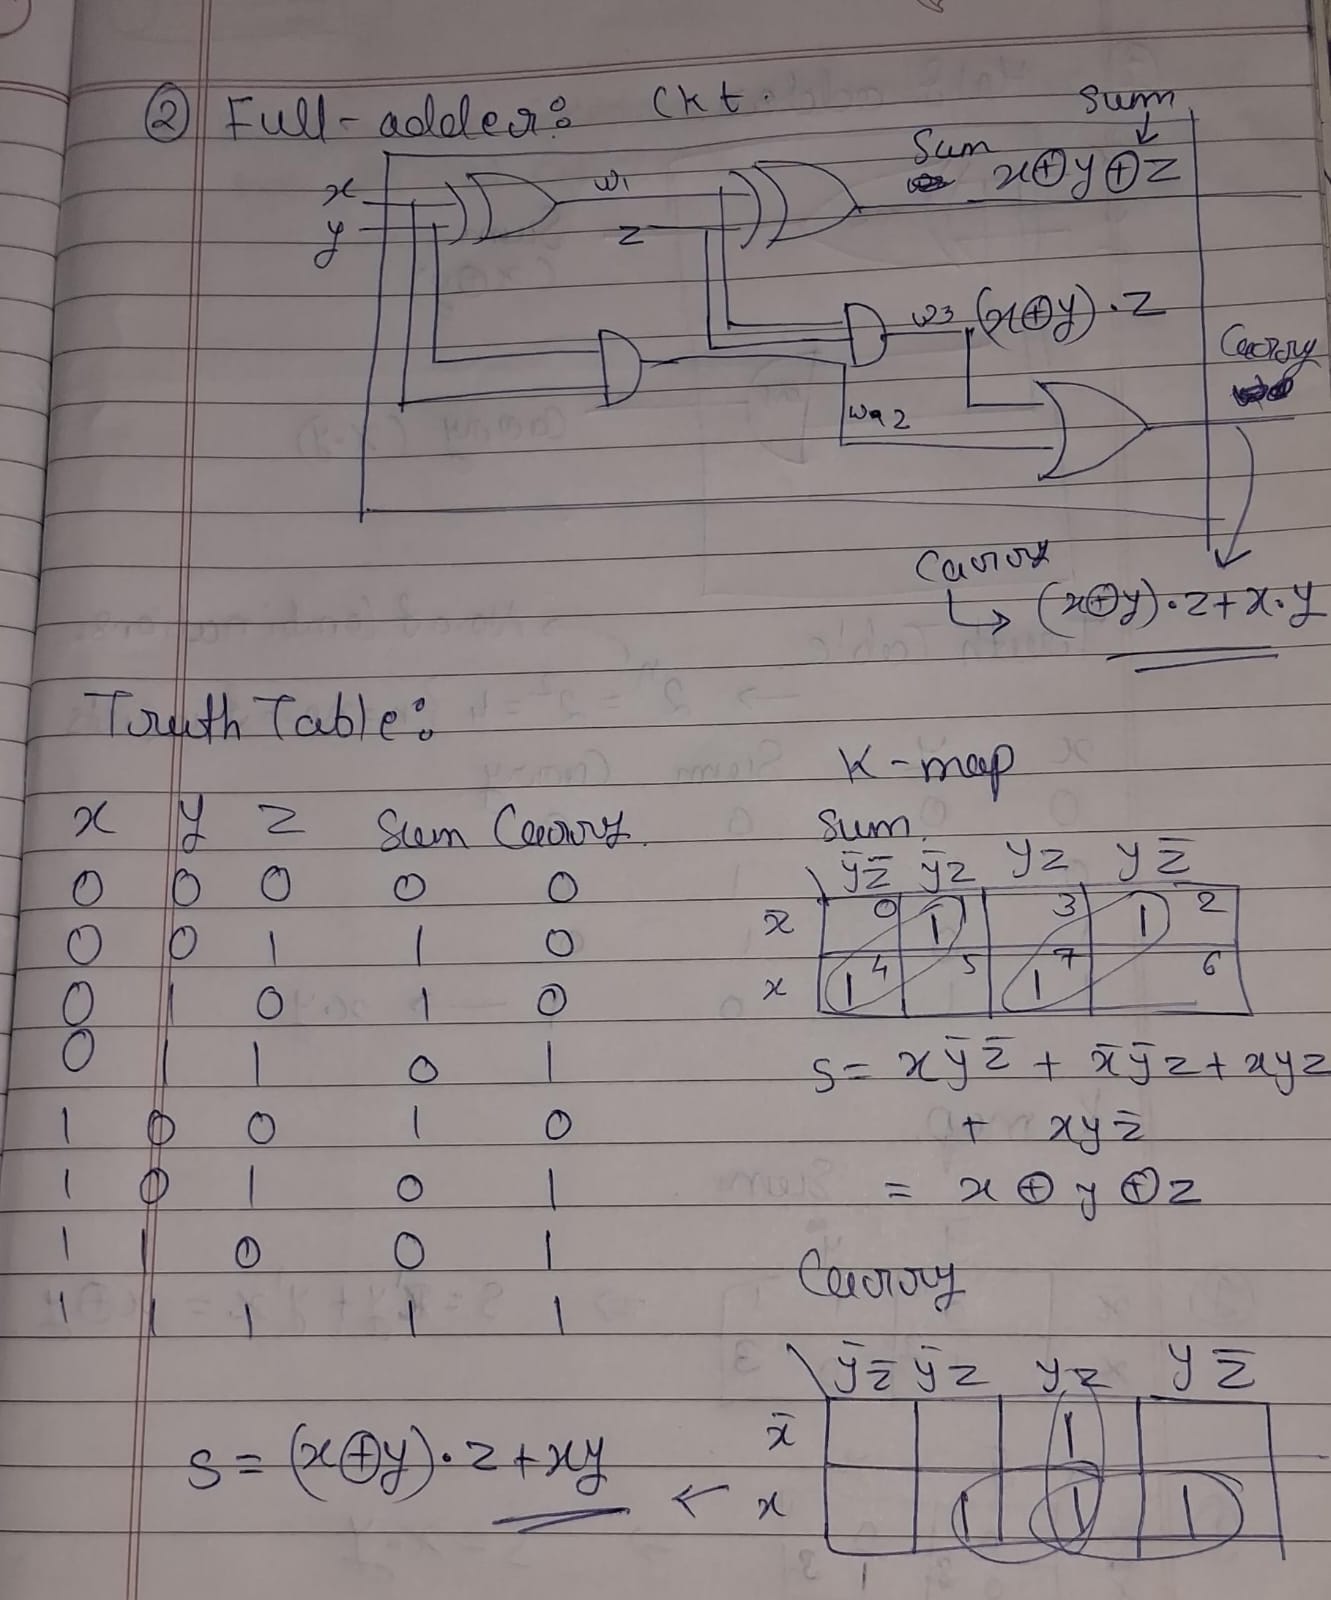 ② Full-adder: Ckt.
Sum
x w₁ Sum x⊕y⊕z
y z
w3 (x⊕y)·z
Carry
wa2
Carry
(x⊕y)·z+x·y
Truth Table:
K-map
x y z Sum Carry
0 0 0 0 0
0 0 1 1 0
0 1 0 1 0
0 1 1 0 1
1 0 0 1 0
1 0 1 0 1
1 1 0 0 1
1 1 1 1 1
Sum.
y̅z̅ y̅z yz yz̅
x̅ 0 1 1 3 1 2
x 1 4 5 1 7 6
S= xy̅z̅ + x̅y̅z + xyz
+ xyz̅
= x⊕y⊕z
Carry
y̅z̅ y̅z yz yz̅
x̅ 1
S= (x⊕y)·z+xy ← x 1 1 1